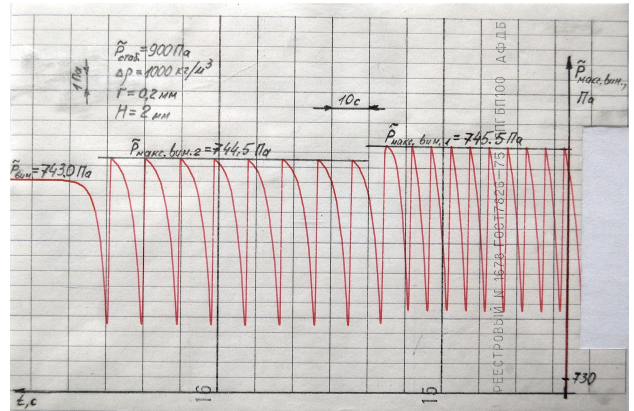 P̃стаб.=900Па
Δρ=1000 кг/м³
r=0,2мм
H=2 мм
1Па
10с
P̃макс.вим.,
Па
P̃макс.вим.1=745.5Па
P̃макс.вим.2=744,5Па
P̃вим=743.0Па
РЕЕСТРОВЫЙ N 1678 ГОСТ7826-75
БП100 АФДБ
730
t,с
16
15